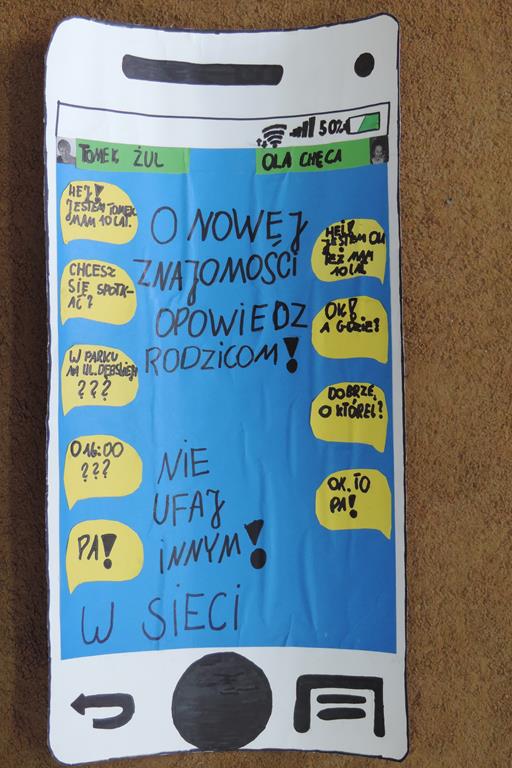 50%
TOMEK ŻUL
OLA CHĘCA
HEJ!
JESTEM TOMEK
MAM 10 LAT.
HEJ!
JESTEM OLA
TEŻ MAM
10 LAT.
CHCESZ
SIĘ SPOTK-
AĆ?
OK!
A GDZIE?
W PARKU
NA UL. DĘBSKIEJ
???
DOBRZE,
O KTÓREJ?
O 16:00
???
OK. TO
PA!
PA!
O NOWEJ
ZNAJOMOŚCI
OPOWIEDZ
RODZICOM!
NIE
UFAJ
INNYM!
W SIECI